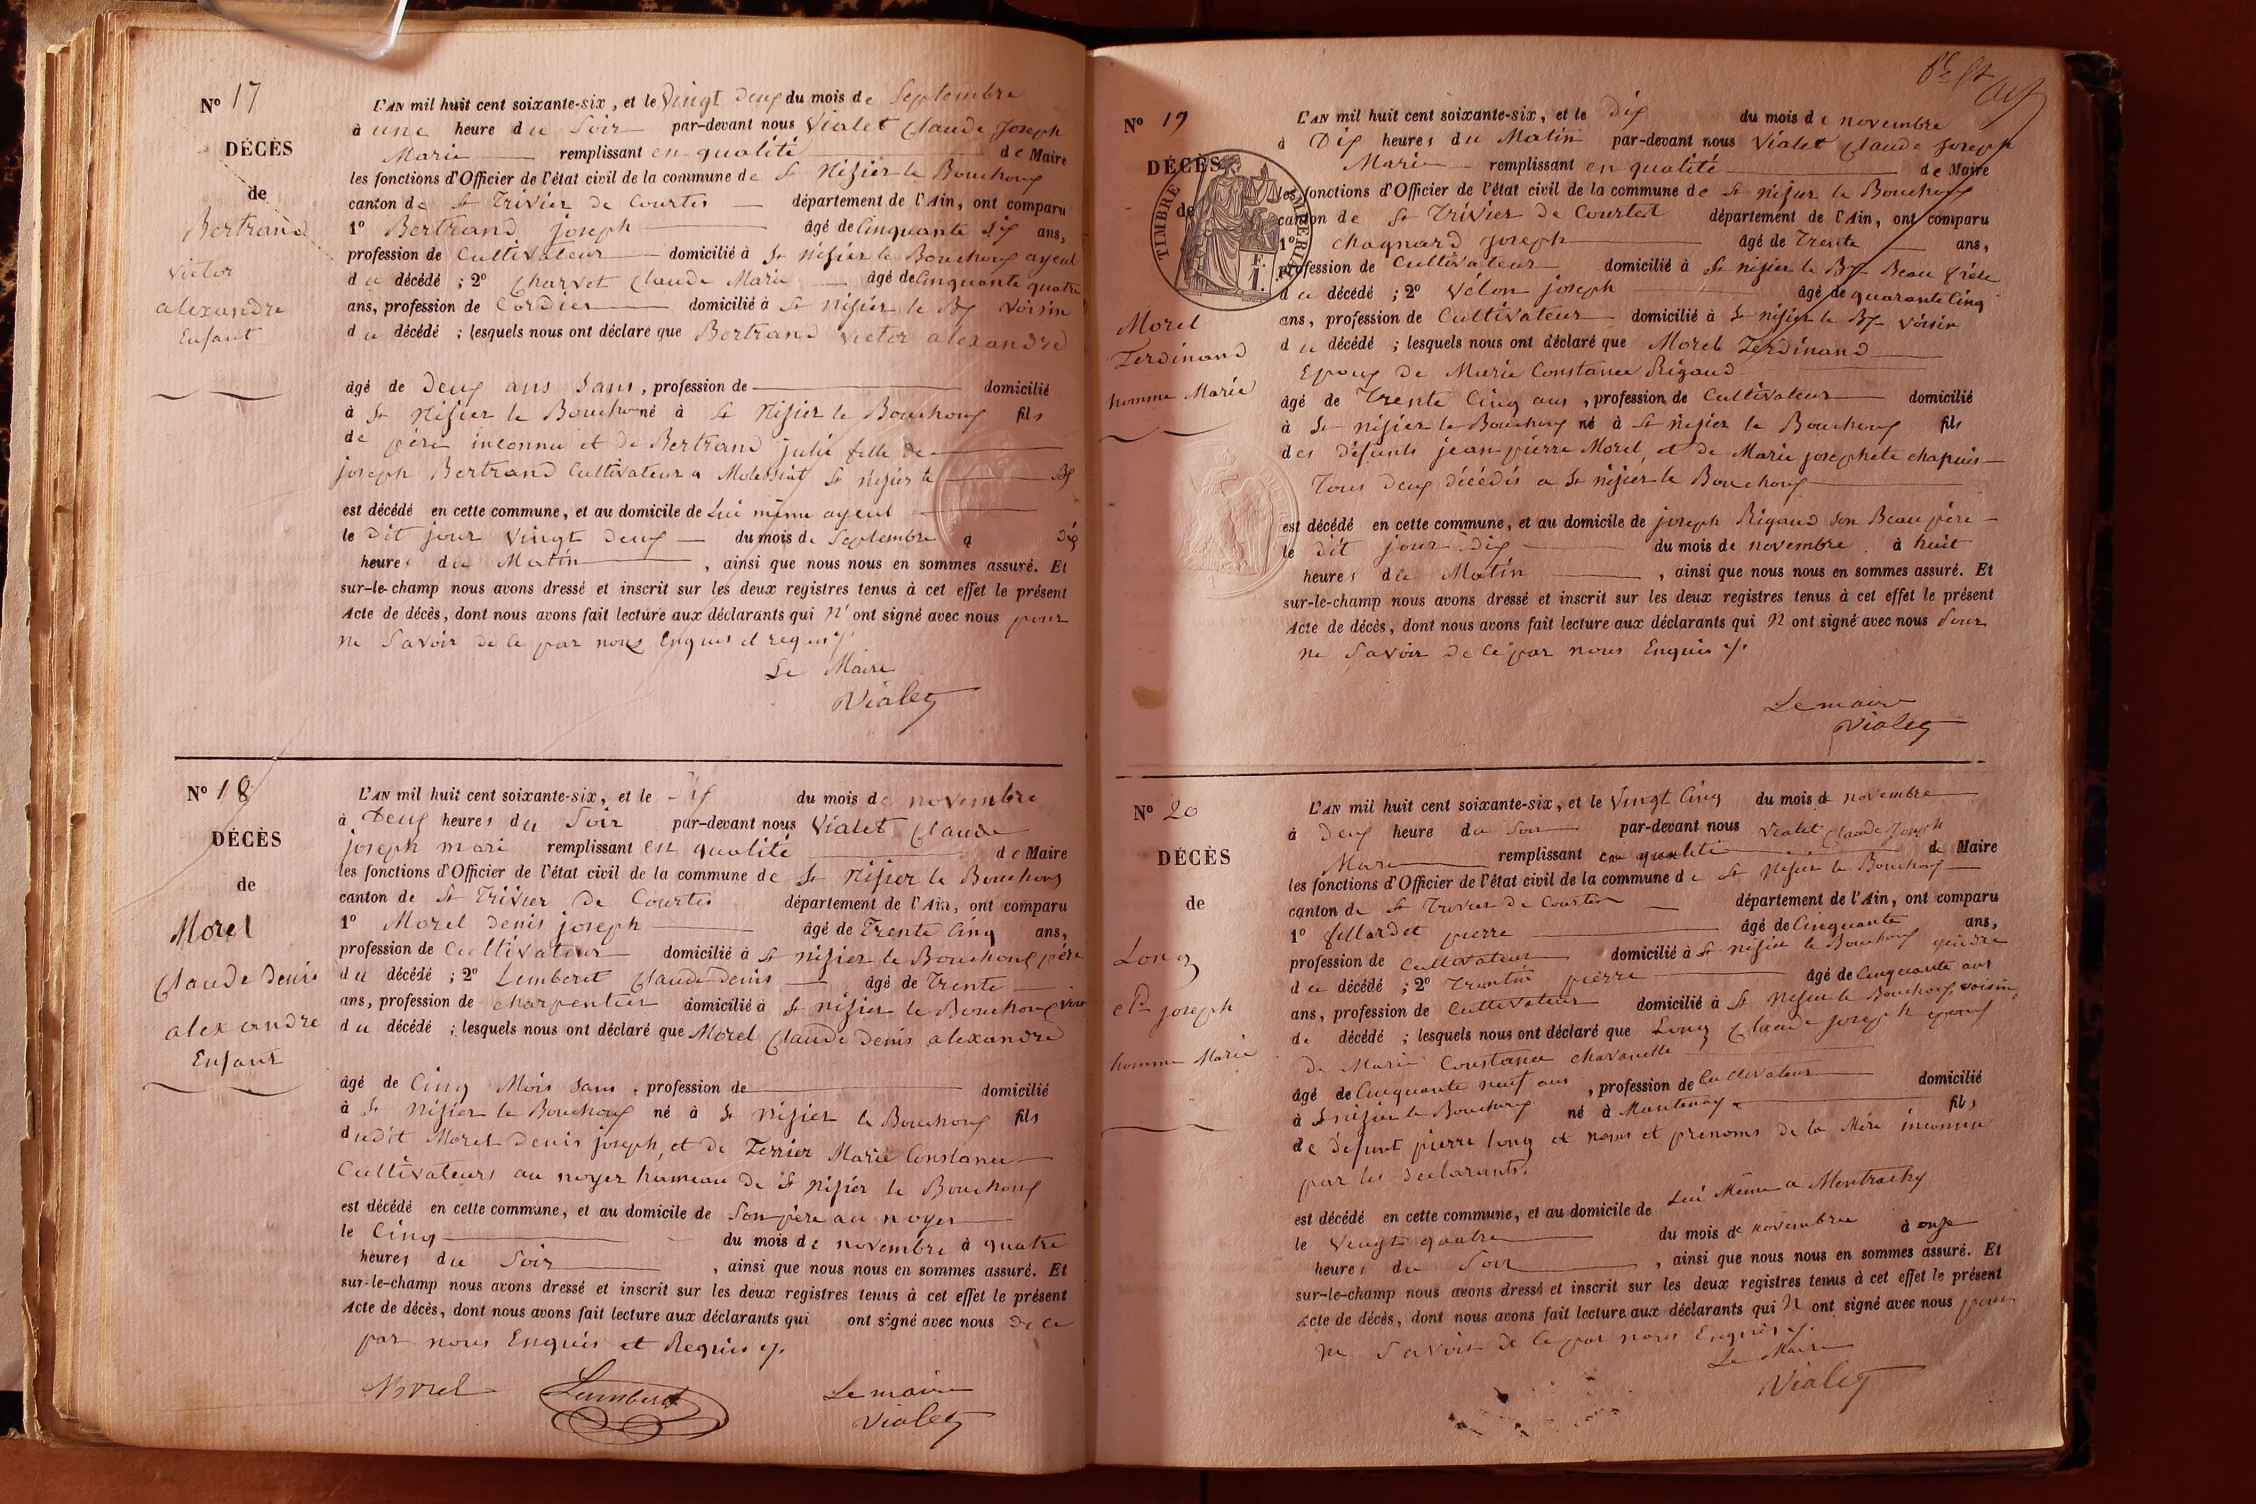 Nº 17
DÉCÈS
de
Bertrand
victor
alexandre
Enfant
L'AN mil huit cent soixante-six, et le vingt deux du mois de Septembre
à une heure du Soir par-devant nous Vialet Claude Joseph
Marie remplissant en qualité de Maire
les fonctions d'Officier de l'état civil de la commune de St Nizier le Bouchoux
canton de St Trivier de Courtes département de l'Ain, ont comparu
1º Bertrand joseph âgé de Cinquante Six ans,
profession de Cultivateur domicilié à St Nizier le Bouchoux ayeul
du décédé ; 2º Charvet Claude Marie âgé de Cinquante quatre
ans, profession de Cordier domicilié à St Nizier le Bx Voisin
du décédé ; lesquels nous ont déclaré que Bertrand victor alexandre
âgé de Deux ans Sans, profession de domicilié
à St Nizier le Bouchoux né à St Nizier le Bouchoux fils
de père inconnu et de Bertrand julie fille de
joseph Bertrand Cultivateur a St Nizier le Bx
est décédé en cette commune, et au domicile de Lui même ayeul
le dit jour vingt deux du mois de Septembre a Dix
heures du Matin, ainsi que nous nous en sommes assuré. Et
sur-le-champ nous avons dressé et inscrit sur les deux registres tenus à cet effet le présent
Acte de décès, dont nous avons fait lecture aux déclarants qui n'ont signé avec nous pour
ne Savoir de ce par nous Enquis et requis
Le Maire
Vialet
Nº 18
DÉCÈS
de
Morel
Claude Denis
alexandre
Enfant
L'AN mil huit cent soixante-six, et le Six du mois de novembre
à Deux heures du Soir par-devant nous Vialet Claude
joseph mari remplissant en qualité de Maire
les fonctions d'Officier de l'état civil de la commune de St Nizier le Bouchoux
canton de St Trivier de Courtes département de l'Ain, ont comparu
1º Morel denis joseph âgé de Trente Cinq ans,
profession de Cultivateur domicilié à St nizier le Bouchoux père
du décédé ; 2º Lemberet Claude Denis âgé de Trente
ans, profession de charpentier domicilié à St nizier le Bouchoux
du décédé ; lesquels nous ont déclaré que Morel Claude Denis alexandre
âgé de Cinq Mois Sans, profession de domicilié
à St Nizier le Bouchoux né à St Nizier le Bouchoux fils
dudit Morel Denis joseph, et de Ferrier Marie Constance
Cultivateurs au noyer hameau de St Nizier le Bouchoux
est décédé en cette commune, et au domicile de Son père au noyer
le Cinq du mois de novembre à quatre
heures du Soir, ainsi que nous nous en sommes assuré. Et
sur-le-champ nous avons dressé et inscrit sur les deux registres tenus à cet effet le présent
Acte de décès, dont nous avons fait lecture aux déclarants qui ont signé avec nous de ce
par nous Enquis et Requis
Morel Lemberet Le maire
Vialet
Nº 19
DÉCÈS
de
TIMBRE IMPÉRIAL
Morel
Ferdinand
homme Marié
L'AN mil huit cent soixante-six, et le dix du mois de novembre
à Dix heures du Matin par-devant nous Vialet Claude joseph
Marie remplissant en qualité de Maire
les fonctions d'Officier de l'état civil de la commune de St Nizier le Bouchoux
canton de St Trivier de Courtes département de l'Ain, ont comparu
1º Chagnard joseph âgé de Trente ans,
profession de Cultivateur domicilié à St nizier le Bx Beau frère
du décédé ; 2º Vélon joseph âgé de quarante Cinq
ans, profession de Cultivateur domicilié à St nizier le Bx Voisin
du décédé ; lesquels nous ont déclaré que Morel Ferdinand
Epoux de Marie Constance Rigaud
âgé de Trente Cinq ans, profession de Cultivateur domicilié
à St nizier le Bouchoux né à St nizier le Bouchoux fils
des défunts jean pierre Morel, et de Marie josephete chapuis
Tous deux décédés a St nizier le Bouchoux
est décédé en cette commune, et au domicile de joseph Rigaud Son Beau père
le dit jour dix du mois de novembre à huit
heures du Matin, ainsi que nous nous en sommes assuré. Et
sur-le-champ nous avons dressé et inscrit sur les deux registres tenus à cet effet le présent
Acte de décès, dont nous avons fait lecture aux déclarants qui N ont signé avec nous Pour
ne Savoir de Ce par nous Enquis
Le maire
Vialet
Nº 20
DÉCÈS
de
Long
Cde joseph
homme Marié
L'AN mil huit cent soixante-six, et le Vingt Cinq du mois de novembre
à Deux heure du Soir par-devant nous Vialet Claude Joseph
Marie remplissant en qualité de Maire
les fonctions d'Officier de l'état civil de la commune de St Nizier le Bouchoux
canton de St Trivier de Courtes département de l'Ain, ont comparu
1º pierre âgé de Cinquante ans,
profession de Cultivateur domicilié à St nizier le Bouchoux gendre
du décédé ; 2º pierre âgé de Cinquante ans
ans, profession de Cultivateur domicilié à St Nizier le Bouchoux voisin
de décédé ; lesquels nous ont déclaré que Long Claude Joseph époux
de Marie Constance
âgé de Cinquante neuf ans, profession de Cultivateur domicilié
à St nizier le Bouchoux né à Mantenay fils
de defunt pierre long et noms et prenoms de la Mère inconnu
par les declarants.
est décédé en cette commune, et au domicile de Lui Même a Montrachy
le Vingt quatre du mois de novembre à onze
heures du Soir, ainsi que nous nous en sommes assuré. Et
sur-le-champ nous avons dressé et inscrit sur les deux registres tenus à cet effet le présent
Acte de décès, dont nous avons fait lecture aux déclarants qui N ont signé avec nous pour
ne Savoir de Ce par nous Enquis
Le Maire
Vialet